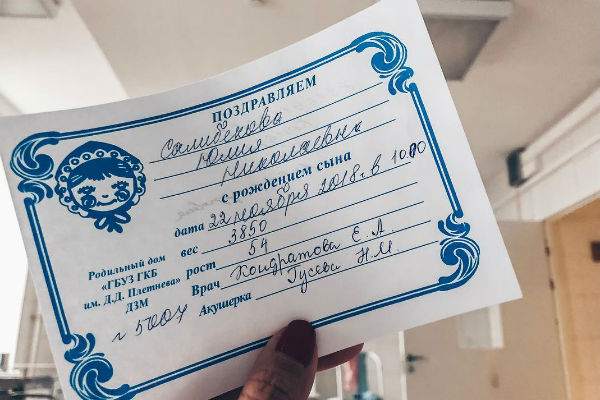 ПОЗДРАВЛЯЕМ
Салибекова
Юлия
Николаевна
с рождением сына
дата 22 ноября 2018г. в 10.00
вес 3850
рост 54
Врач Кондратова Е. А.
Акушерка Гусева Н. М.
Родильный дом
«ГБУЗ ГКБ
им. Д.Д. Плетнева»
ДЗМ
5007